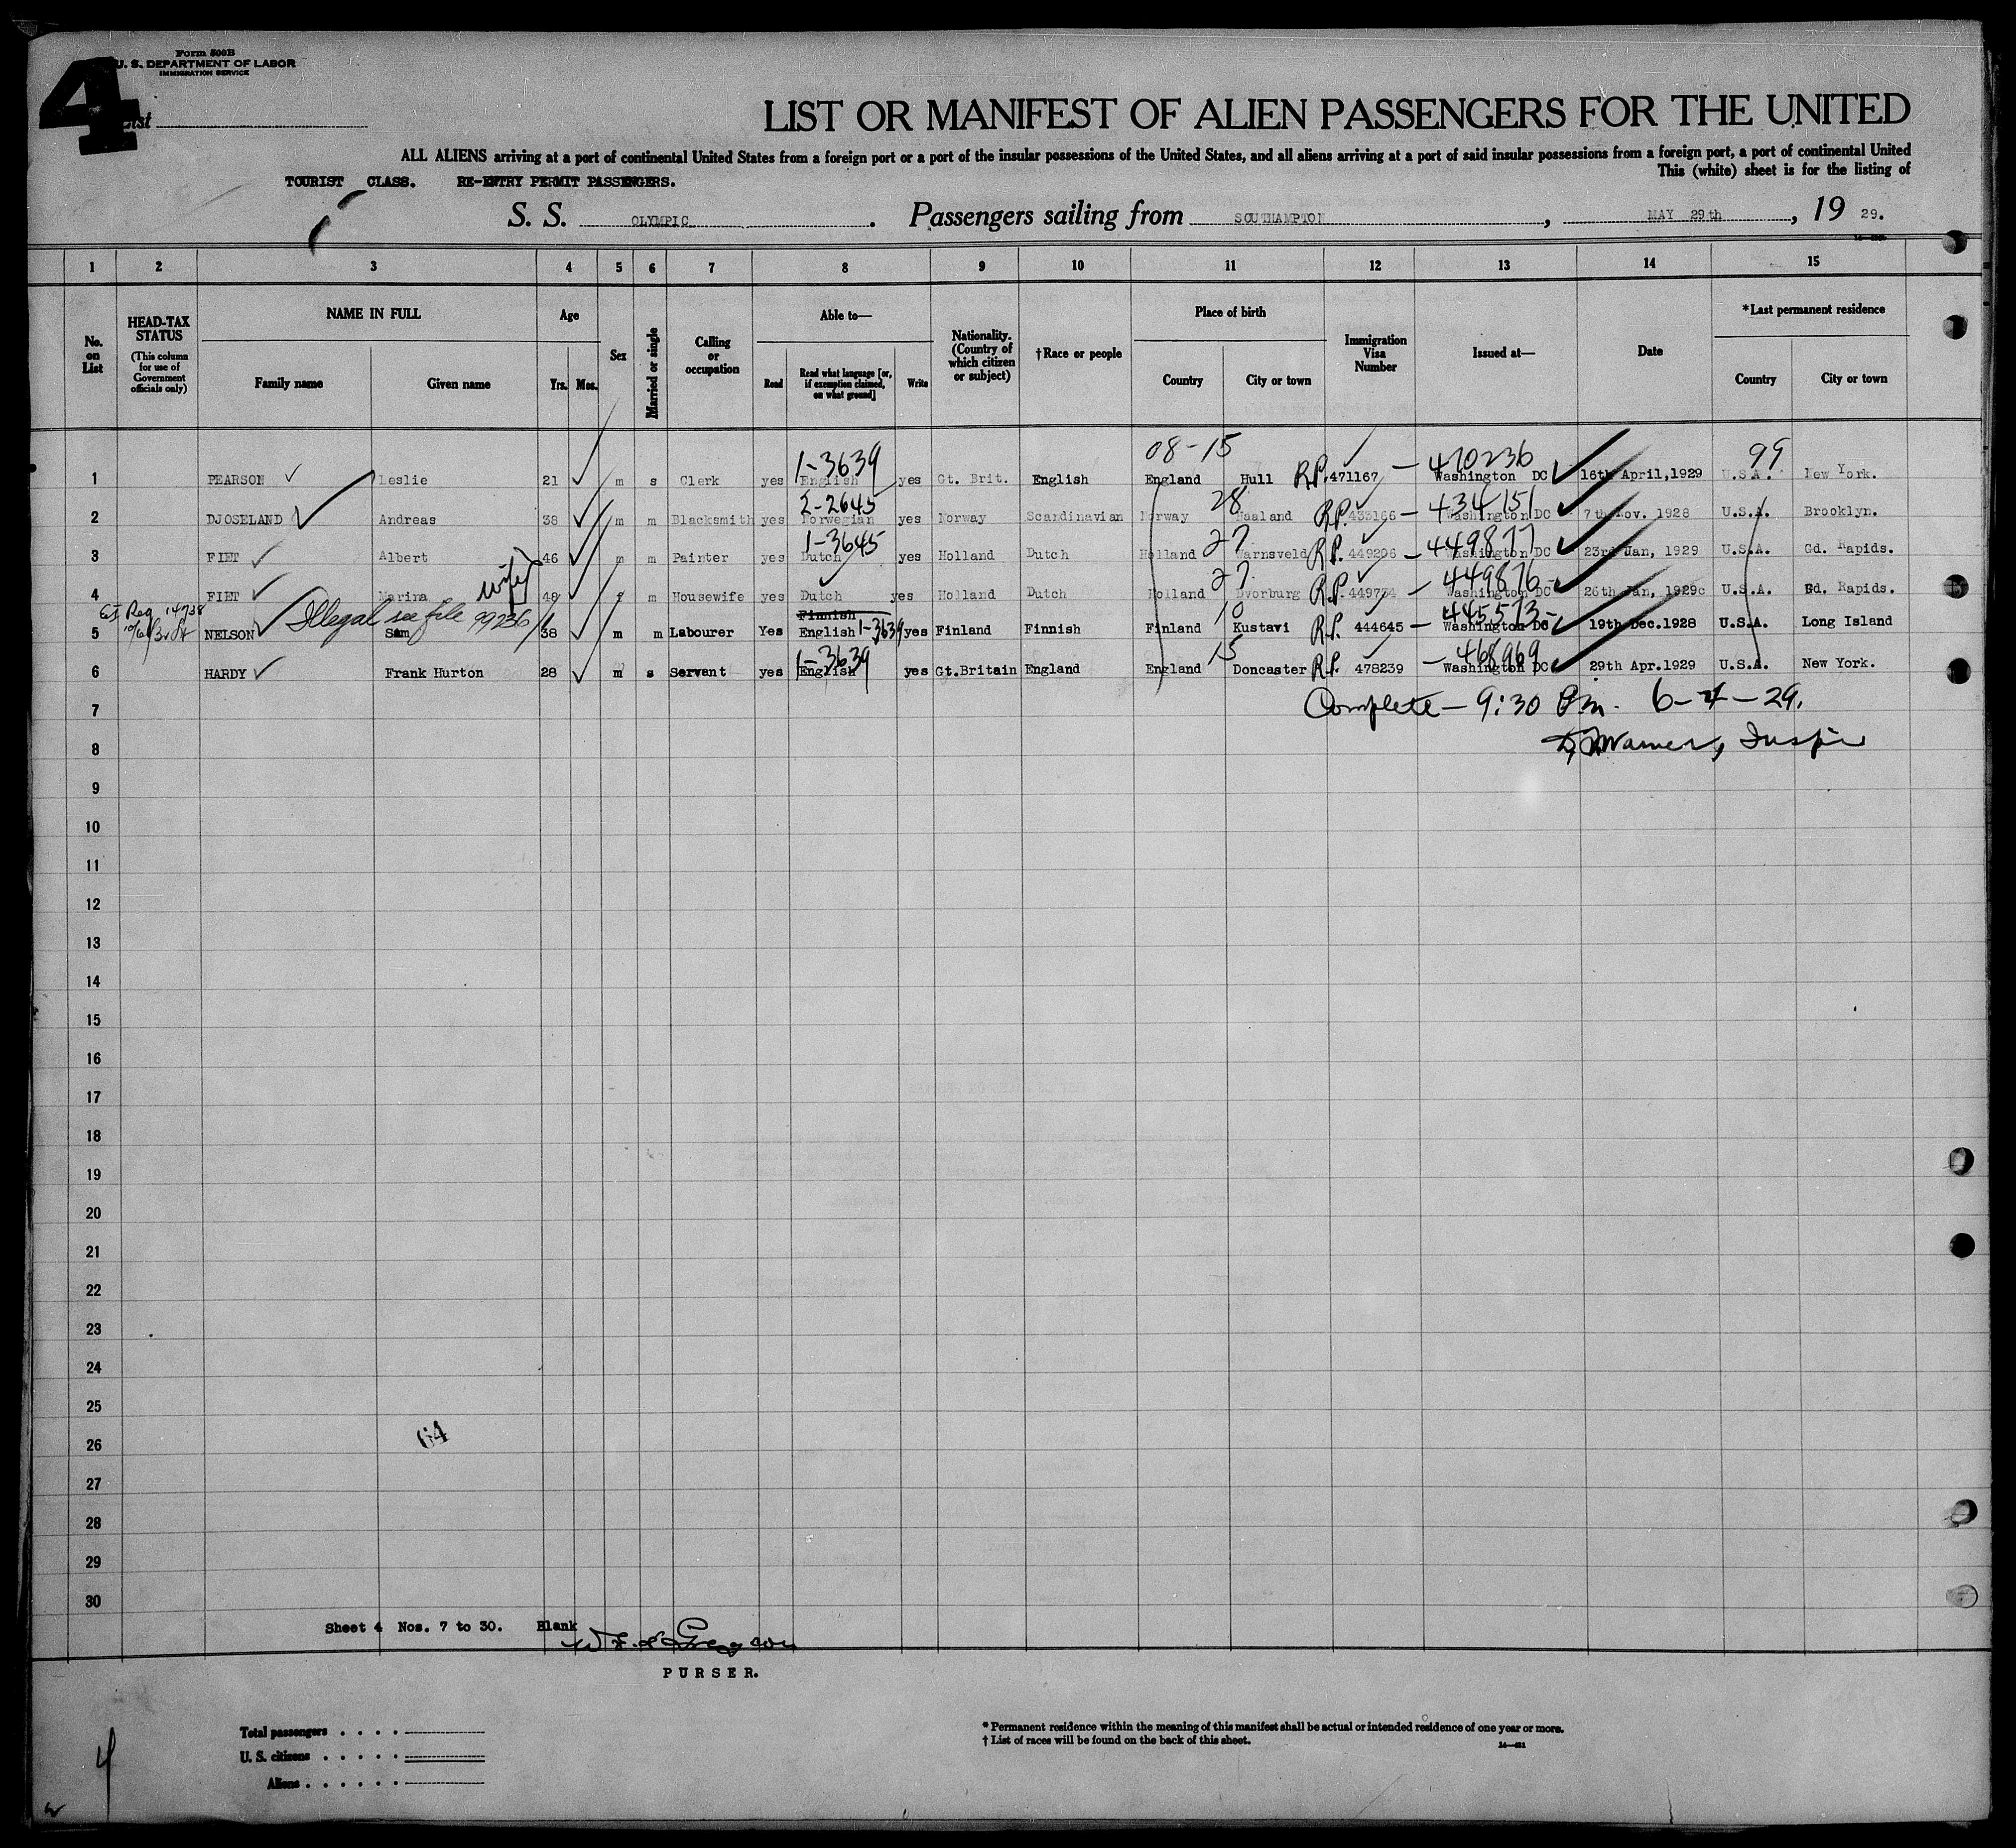 4
Form 500B
U. S. DEPARTMENT OF LABOR
IMMIGRATION SERVICE
List
LIST OR MANIFEST OF ALIEN PASSENGERS FOR THE UNITED
ALL ALIENS arriving at a port of continental United States from a foreign port or a port of the insular possessions of the United States, and all aliens arriving at a port of said insular possessions from a foreign port, a port of continental United
This (white) sheet is for the listing of
TOURIST CLASS. RE-ENTRY PERMIT PASSENGERS.
S. S. OLYMPIC. Passengers sailing from SOUTHAMPTON, MAY 29th, 19 29.
1 2 3 4 5 6 7 8 9 10 11 12 13 14 15
No. on List
HEAD-TAX STATUS (This column for use of Government officials only)
NAME IN FULL
Family name Given name
Age
Yrs. Mos.
Sex
Married or single
Calling or occupation
Able to—
Read Read what language [or, if exemption claimed, on what ground] Write
Nationality. (Country of which citizen or subject)
†Race or people
Place of birth
Country City or town
Immigration Visa Number
Issued at—
Date
*Last permanent residence
Country City or town
08-15 99
1-3639 470236
1 PEARSON Leslie 21 m s Clerk yes English yes Gt. Brit. English England Hull R.P. 471167 — Washington DC 16th April,1929 U.S.A. New York.
2-2645 28 434151
2 DJOSELAND Andreas 38 m m Blacksmith yes Norwegian yes Norway Scandinavian Norway Haaland R.P. 433166 — Washington DC 7th Nov. 1928 U.S.A. Brooklyn.
1-3645 27 449877
3 FIET Albert 46 m m Painter yes Dutch yes Holland Dutch Holland Warnsveld R.P. 449206 — Washington DC 23rd Jan, 1929 U.S.A. Gd. Rapids.
wife 27 449876
4 FIET Marina 48 f m Housewife yes Dutch yes Holland Dutch Holland Dvorburg R.P. 449754 — Washington DC 26th Jan, 1929 U.S.A. Gd. Rapids.
Reg 14738 Illegal see file 99236/1 Finnish 10 445573
5 NELSON Sam 38 m m Labourer Yes English 1-3639 yes Finland Finnish Finland Kustavi R.P. 444645 — Washington DC 19th Dec.1928 U.S.A. Long Island
1-3639 15 468969
6 HARDY Frank Hurton 28 m s Servant yes English yes Gt.Britain England England Doncaster R.P. 478239 — Washington DC 29th Apr.1929 U.S.A. New York.
7 Complete — 9:30 Pm. 6-4-29.
8
9
10
11
12
13
14
15
16
17
18
19
20
21
22
23
24
25
64
26
27
28
29
30
Sheet 4 Nos. 7 to 30. Blank
PURSER.
Total passengers
U. S. citizens
Aliens
* Permanent residence within the meaning of this manifest shall be actual or intended residence of one year or more.
† List of races will be found on the back of this sheet.
4